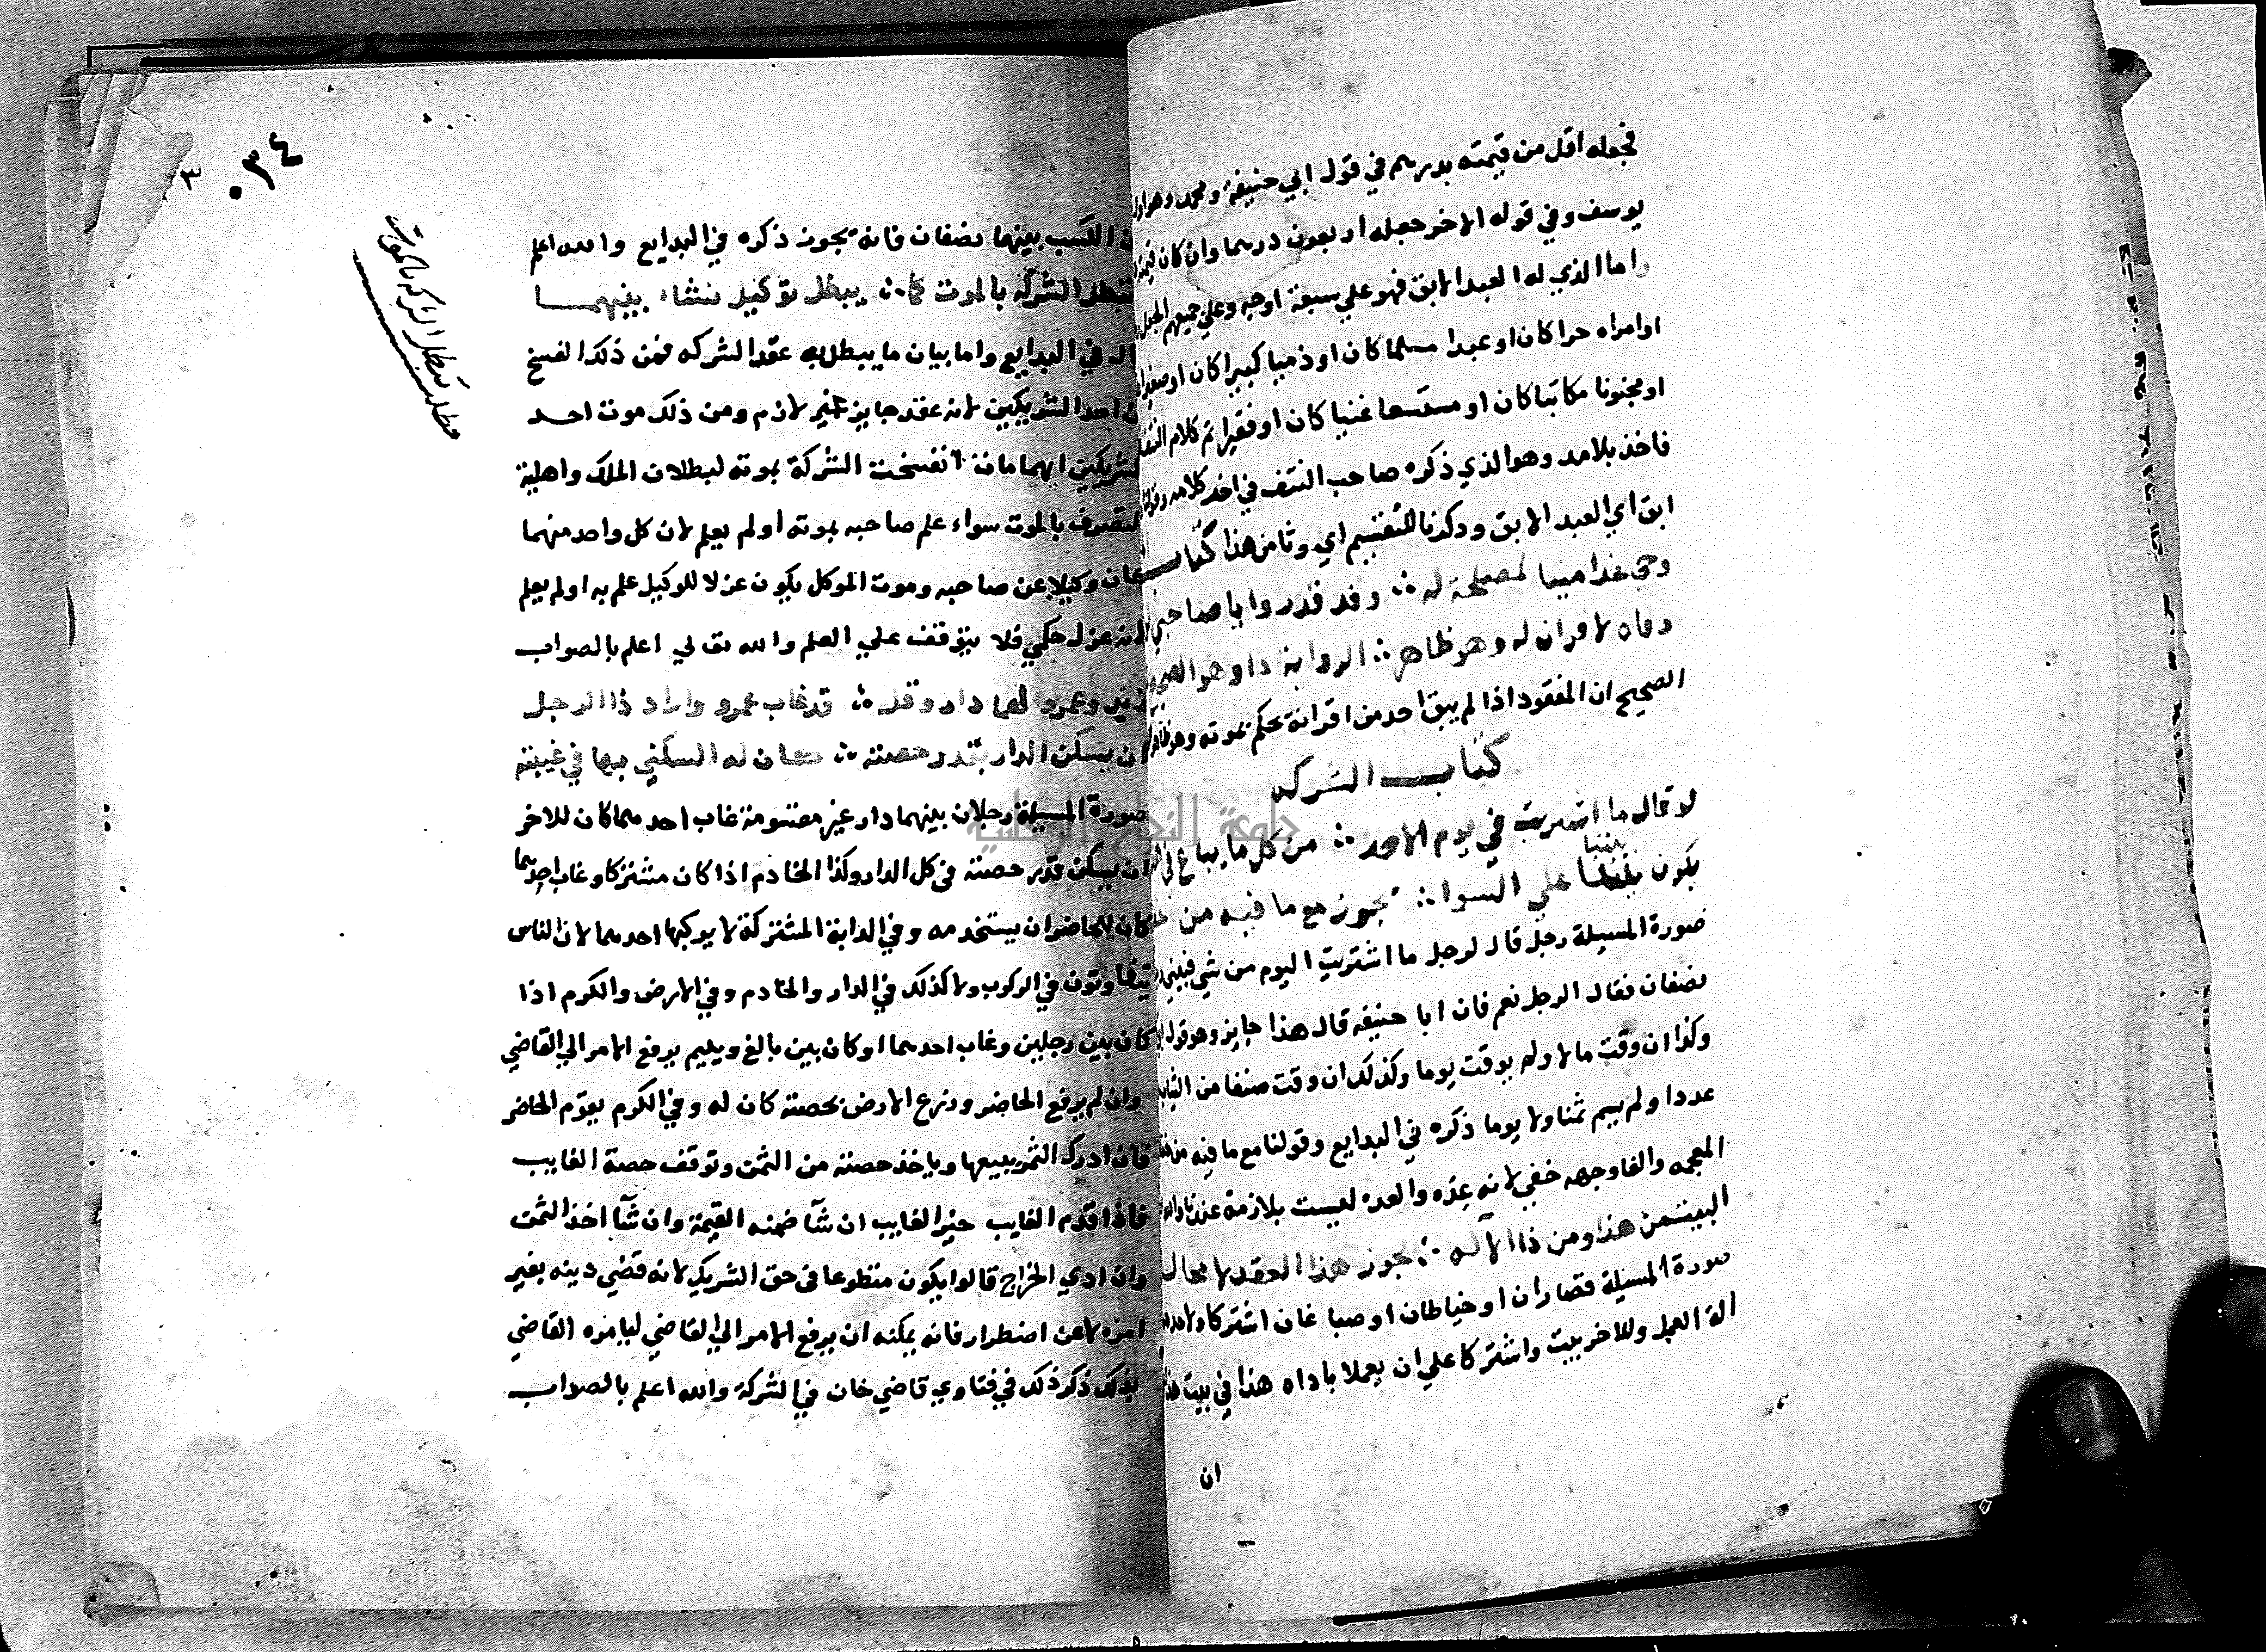 فجعله اقل من قيمته بدرهم في قول ابي حنيفة ومحمد وهو اول
يوسف وفي قوله الاخر جعله اربعون درهما وان كان قيمته
واما الذي له العبد الابق فهو علي سبعة اوجه وعلي جميعهم الجعل
او امراه حرا كان او عبدا مسلما كان او ذميا كبيرا كان او صغيرا
او مجنونا مكاتبا كان او مستسعا غنيا كان او فقيرا تم كلام النتف
فاخذ بلامد وهو الذي ذكره صاحب النتف في اخر كلامه
ابق اي العبد الابق وذكرنا للتقسيم اي وثامن هذا كتاب
لمصلحة له ∴ وقد قدروا يا صاحبي
وفاه لاقران له وهو ظاهر ∴ الرواية ذا وهو الصحيح
الصحيح ان المفقود اذا لم يبق احد من اقرانه يحكم بموته وهو ظاهر
كتاب الشركه
لو قال ما اشتريت في يوم الاحد ∴ من كل ما يباع في
بيننا
يكون علي السوا ∴ يجوز مع ما فيه من
صورة المسيلة رجل قال لرجل ما اشتريت اليوم من شي فبيني
نصفان فقال الرجل نعم فان ابا حنيفه قال هذا جايز وهو قول
وكذا ان وقت مالا ولم يوقت يوما وكذلك ان وقت صنفا من الثياب
عددا ولم يسم ثمنا ولا يوما ذكره في البدايع وقولنا مع ما فيه من
المعجمه والفا وجهه خفي لانه عده والعده ليست بلازمة عندنا
البيت من هذا ومن ذا الاله ∴ يجوز هذا العقد لا محال
صورة المسيلة قصاران او خياطان او صباغان اشتركا ولاحدهما
الة العمل وللاخر بيت واشتركا علي ان يعملا باداه هذا في بيت هذا
ان
٠٣٤
٣
مطلب تبطل الشركه بالموت
ان الكسب بينهما نصفان فانه يجوز ذكره في البدايع والله اعلم
تبطل الشركة بالموت كما ∴ يبطل توكيل نشاء بينهما
قال في البدايع واما بيان ما يبطل به عقد الشركه فمن ذلك الفسخ
من احد الشريكين لانه عقد جايز غير لازم ومن ذلك موت احد
الشريكين ايهما مات انفسخت الشركة بموته لبطلان الملك واهلية
التصرف بالموت سواء علم صاحبه بموته او لم يعلم لان كل واحد منهما
كان وكيلا عن صاحبه وموت الموكل يكون عزلا للوكيل علم به او لم يعلم
لانه عزل حكمي فلا يتوقف علي العلم والله تعالي اعلم بالصواب
زيد وعمرو لهما دار وقد ∴ قد غاب عمرو واراد ذا الرجل
ان يسكن الدار بقدر حصته ∴ كان له السكني بها في غيبته
صورة المسيلة رجلان بينهما دار غير مقسومة غاب احدهما كان للاخر
ان يسكن قدر حصته في كل الدار وكذا الخادم اذا كان مشتركا وغاب احدهما
كان للحاضر ان يستخدمه وفي الدابة المشتركة لا يركبها احدهما لان الناس
يتفاوتون في الركوب ولا كذلك في الدار والخادم وفي الارض والكرم اذا
كان بين رجلين وغاب احدهما او كان بين بالغ ويتيم يرفع الامر الي القاضي
وان لم يرفع الحاضر وزرع الارض بحصته كان له وفي الكرم يقوم الحاضر
فان ادرك الثمر يبيعها وياخذ حصته من الثمن وتوقف حصة الغايب
فاذا قدم الغايب خير الغايب ان شآ ضمنه القيمة وان شآ اخذ الثمن
وان ادي الخراج قالوا يكون متطوعا في حق الشريك لانه قضي دينه بغير
امره لا عن اضطرار فانه يمكنه ان يرفع الامر الي القاضي ليامره القاضي
بذلك ذكر ذلك في فتاوي قاضي خان في الشركة والله اعلم بالصواب